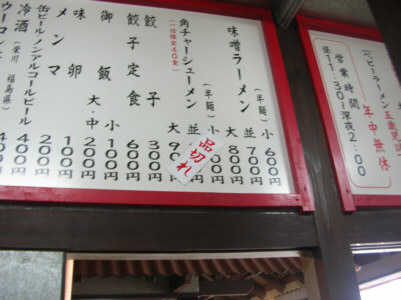 味噌ラーメン
(半麺)小 600
並 700円
大 800円
角チャーシューメン
(一日限定40食)
(半麺)小
並
大 90
品切れ
餃子 300円
餃子定食 600円
御飯 小 100円
大中 200円
味卵 100円
メンマ 200円
缶ビール・ノンアルコールビール 400円
冷酒(栄川 福島県) 400円
ウーロン
ハッピーラーメン
年中無休
営業時間
昼11:30~深夜2:00